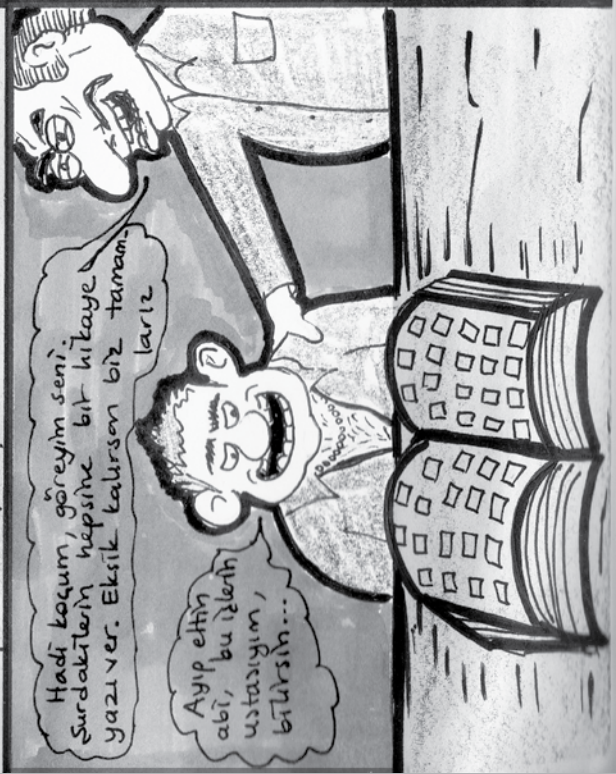 Hadi koçum, göreyim seni.
Şurdakilerin hepsine bir hikaye
yazıver. Eksik kalırsan biz tamam-
larız
Ayıp ettin
abi, bu işlerin
ustasıyım,
bilirsin...